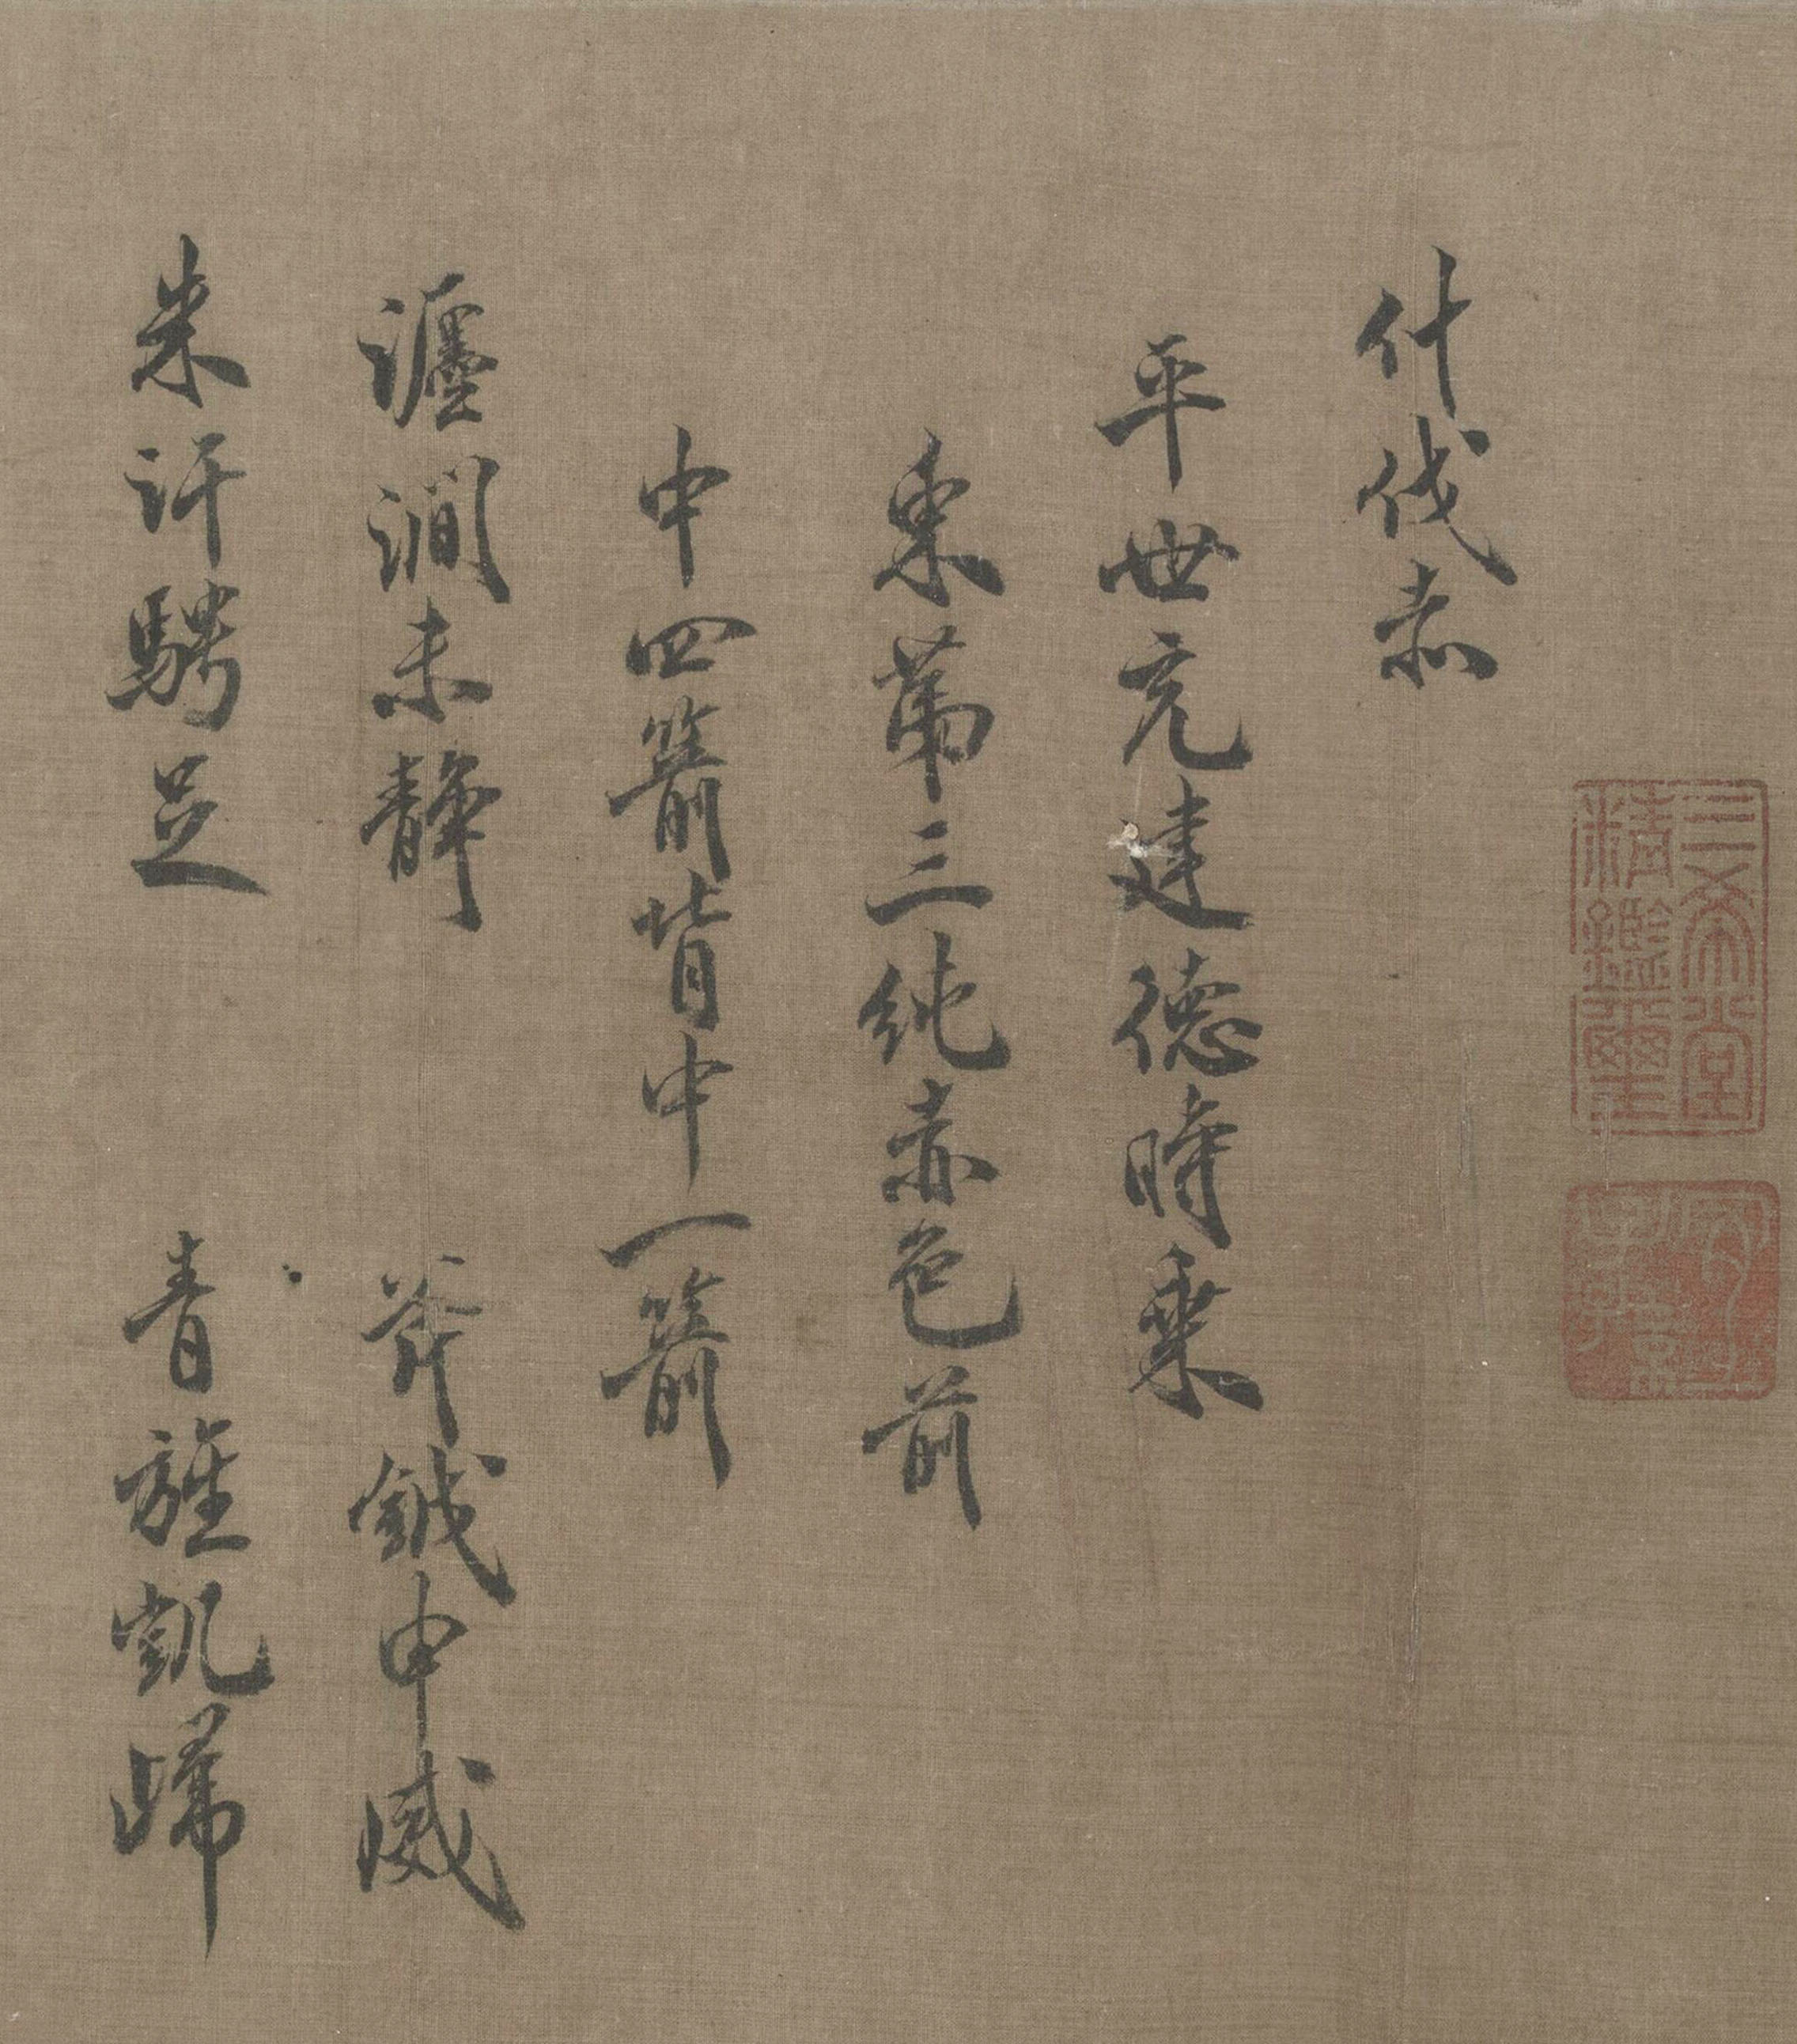 三希堂精鑑璽
宜子孫
什伐赤
平世充建德時乘
東第三純赤色前
中四箭背中一箭
瀍澗未靜　斧鉞申威
朱汗騁足　青旌凱歸